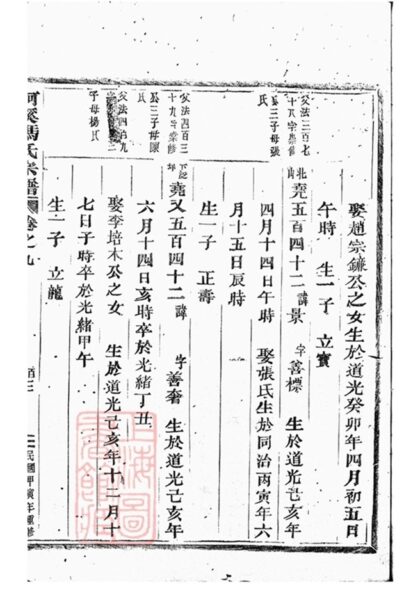 娶趙宗鐮公之女生於道光癸卯年四月初五日
午時 生一子 立寳
父法三百七
氏
堯五百四十二 諱景 字善標 生於道光己亥年
四月十四日午時 娶張氏生於同治丙寅年六
月十五日辰時
生一子 正壽
父法四百三
氏
堯又五百四十二 諱 字善奢 生於道光己亥年
六月十四日亥時卒於光緒丁丑
父法四百九
子母楊氏
娶李培木公之女 生於道光己亥年十二月十
七日子時卒於光緒甲午
生一子 立龍
馮氏宗譜 卷之九 民國甲寅年重修
上海圖書館藏